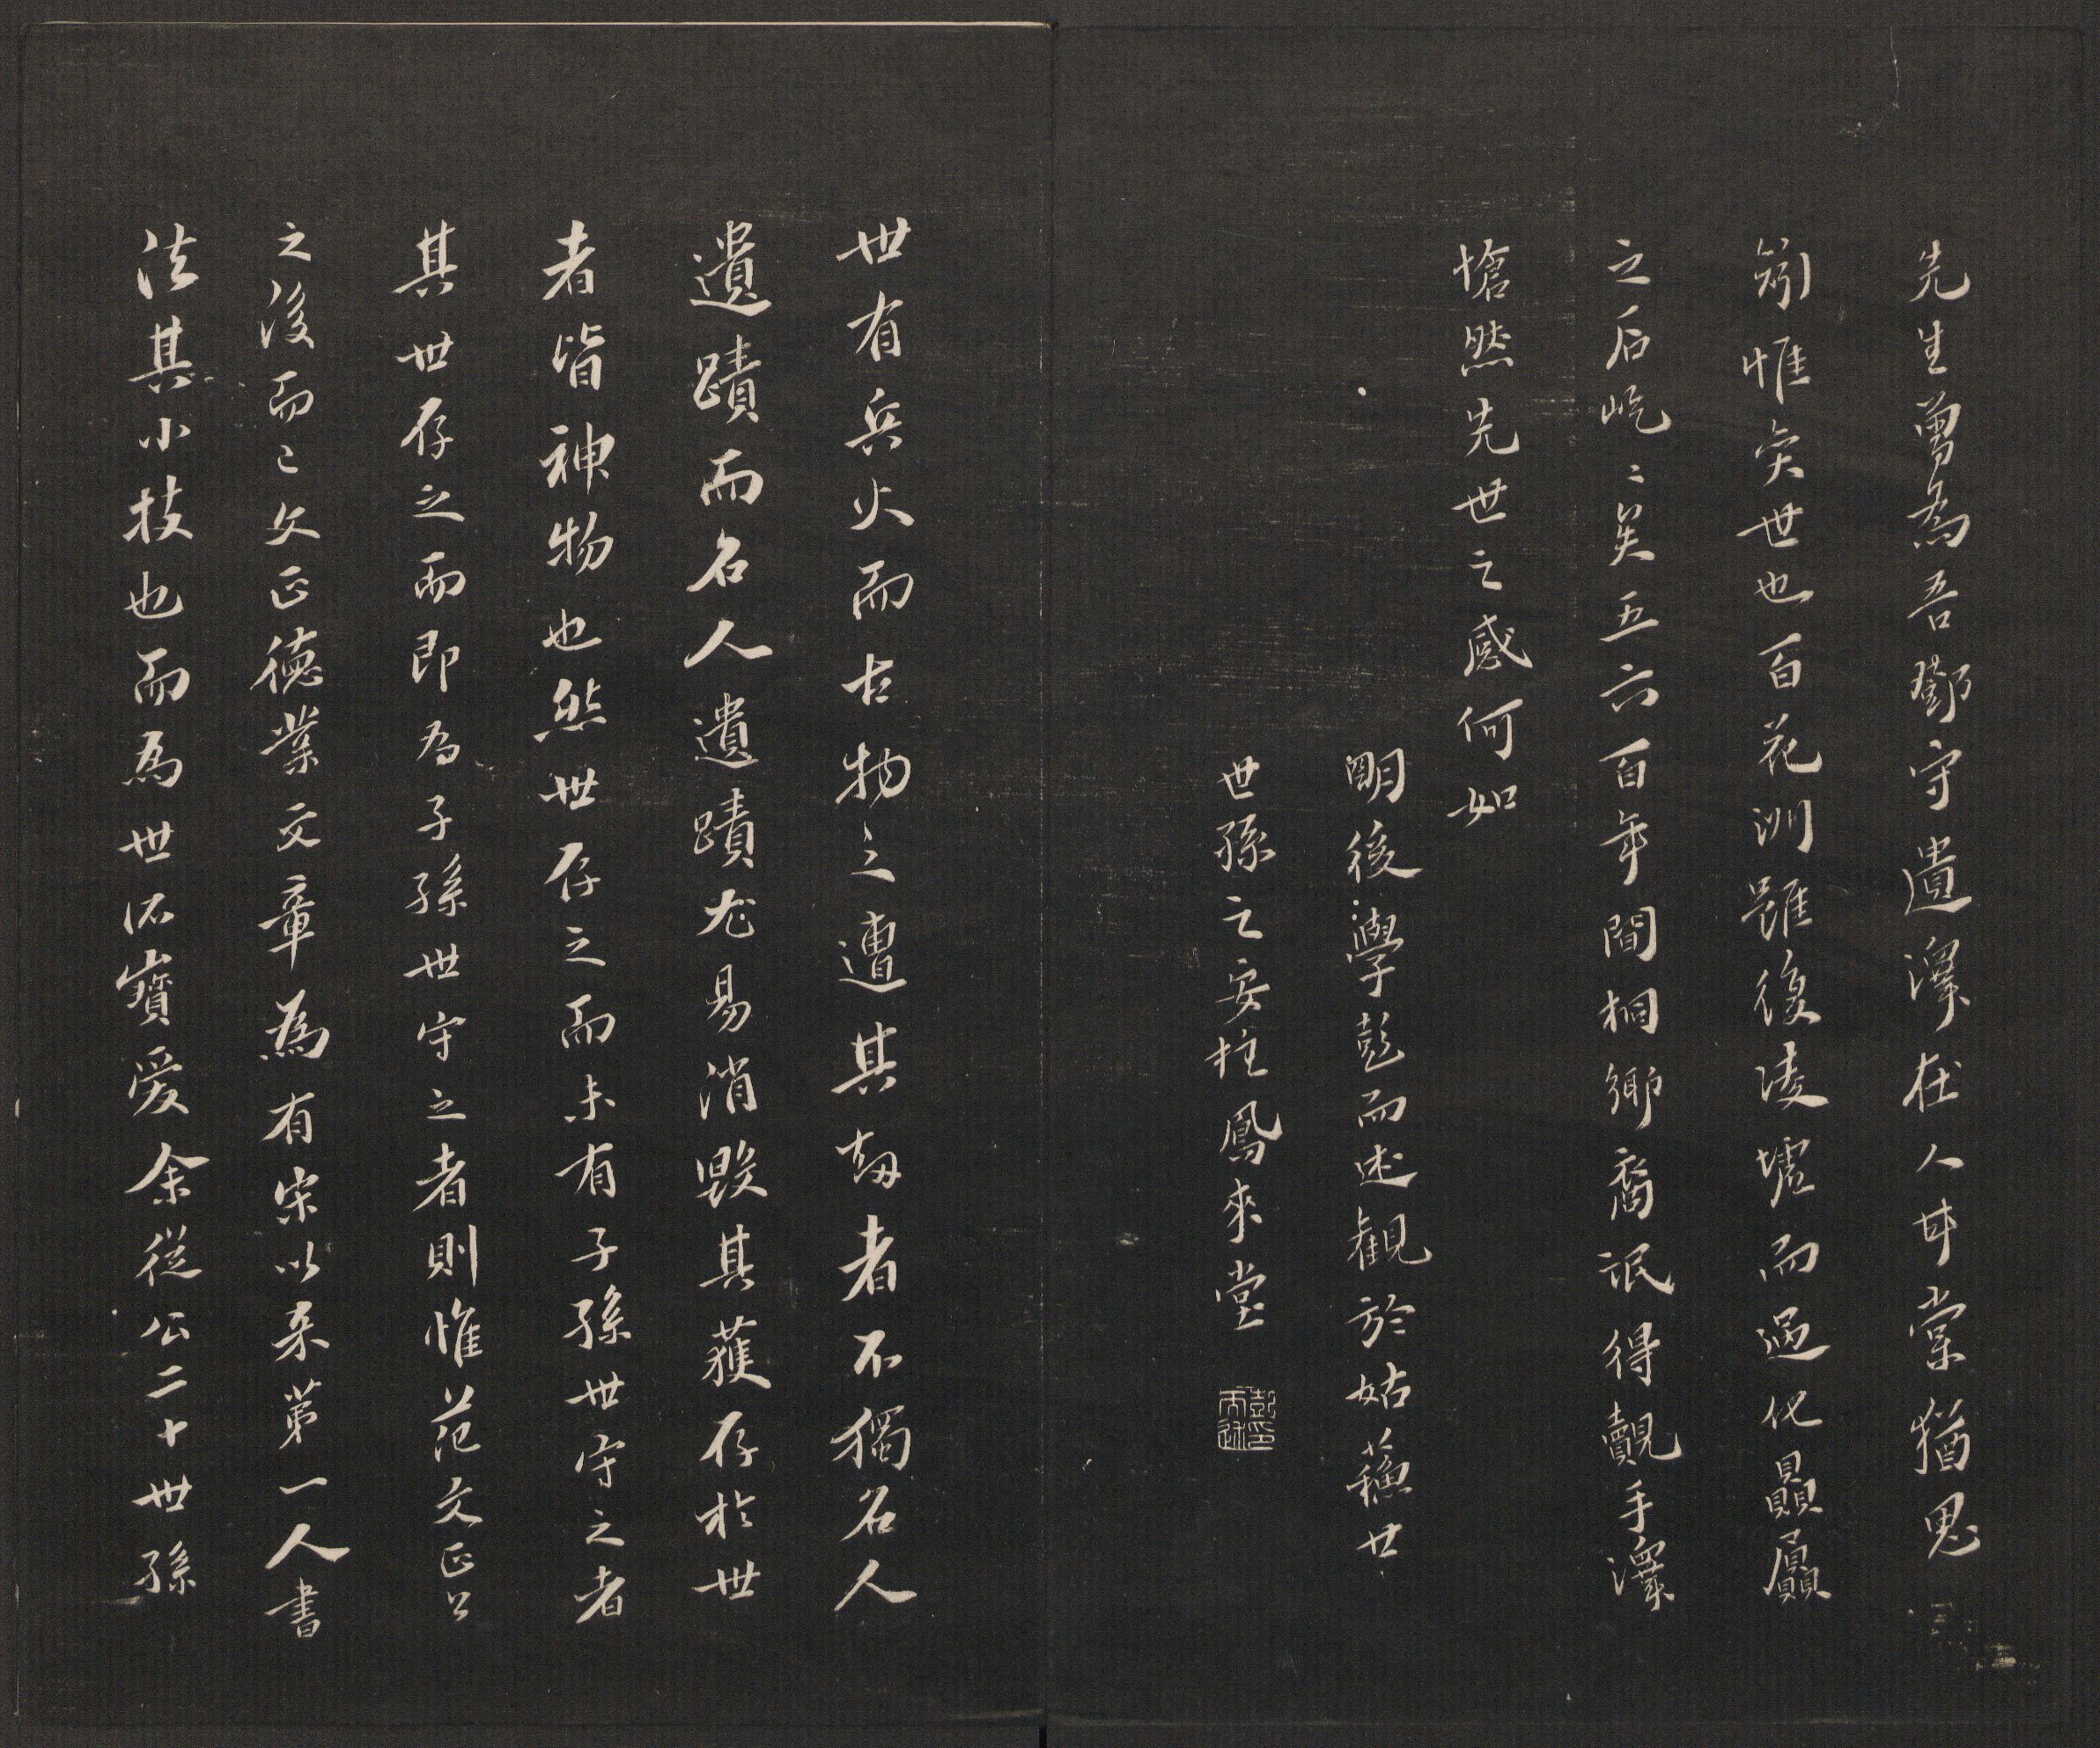 先生曾為吾鄧守遺澤在人甘棠猶思
翦惟奕世也百花洲雖復陵墟而過化贔屭
之石屹〻矣五六百年間桐鄉裔氓得覩手澤
愴然先世之感何如
明後學彭而述觀於姑蘇世
世孫之安柱鳳來堂
彭而述印
世有兵火而古物之遭其劫者不獨名人
遺蹟而名人遺蹟尤易消毀其獲存於世
者皆神物也然世存之而未有子孫世守之者
其世存之而即為子孫世守之者則惟范文正公
之後而已文正德業文章為有宋以来第一人書
法其小技也而為世所寶愛余從公二十世孫